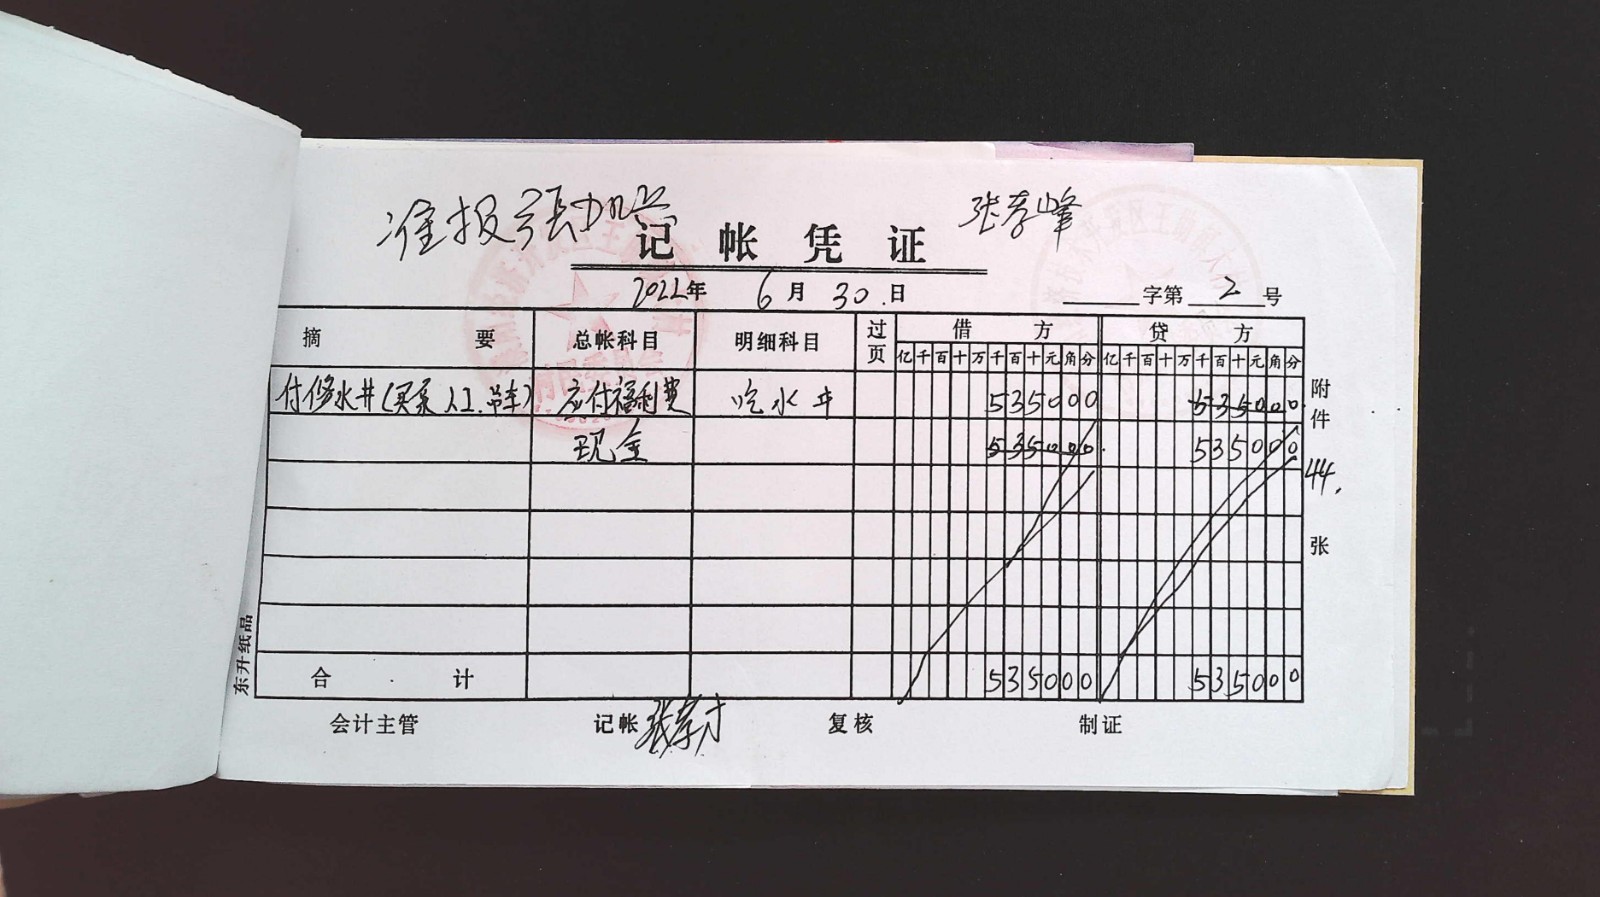 准报 张
张孝峰
记帐凭证
2022年 6月 30日
字第 2 号
摘要 总帐科目 明细科目 过页 借方 贷方
亿千百十万千百十元角分 亿千百十万千百十元角分
付修水井(买泵人工.吊车) 应付福利费 吃水井 535000 535000
现金 535000 535000
附件 44. 张
合计 535000 535000
会计主管 记帐 张孝才 复核 制证
东升纸品